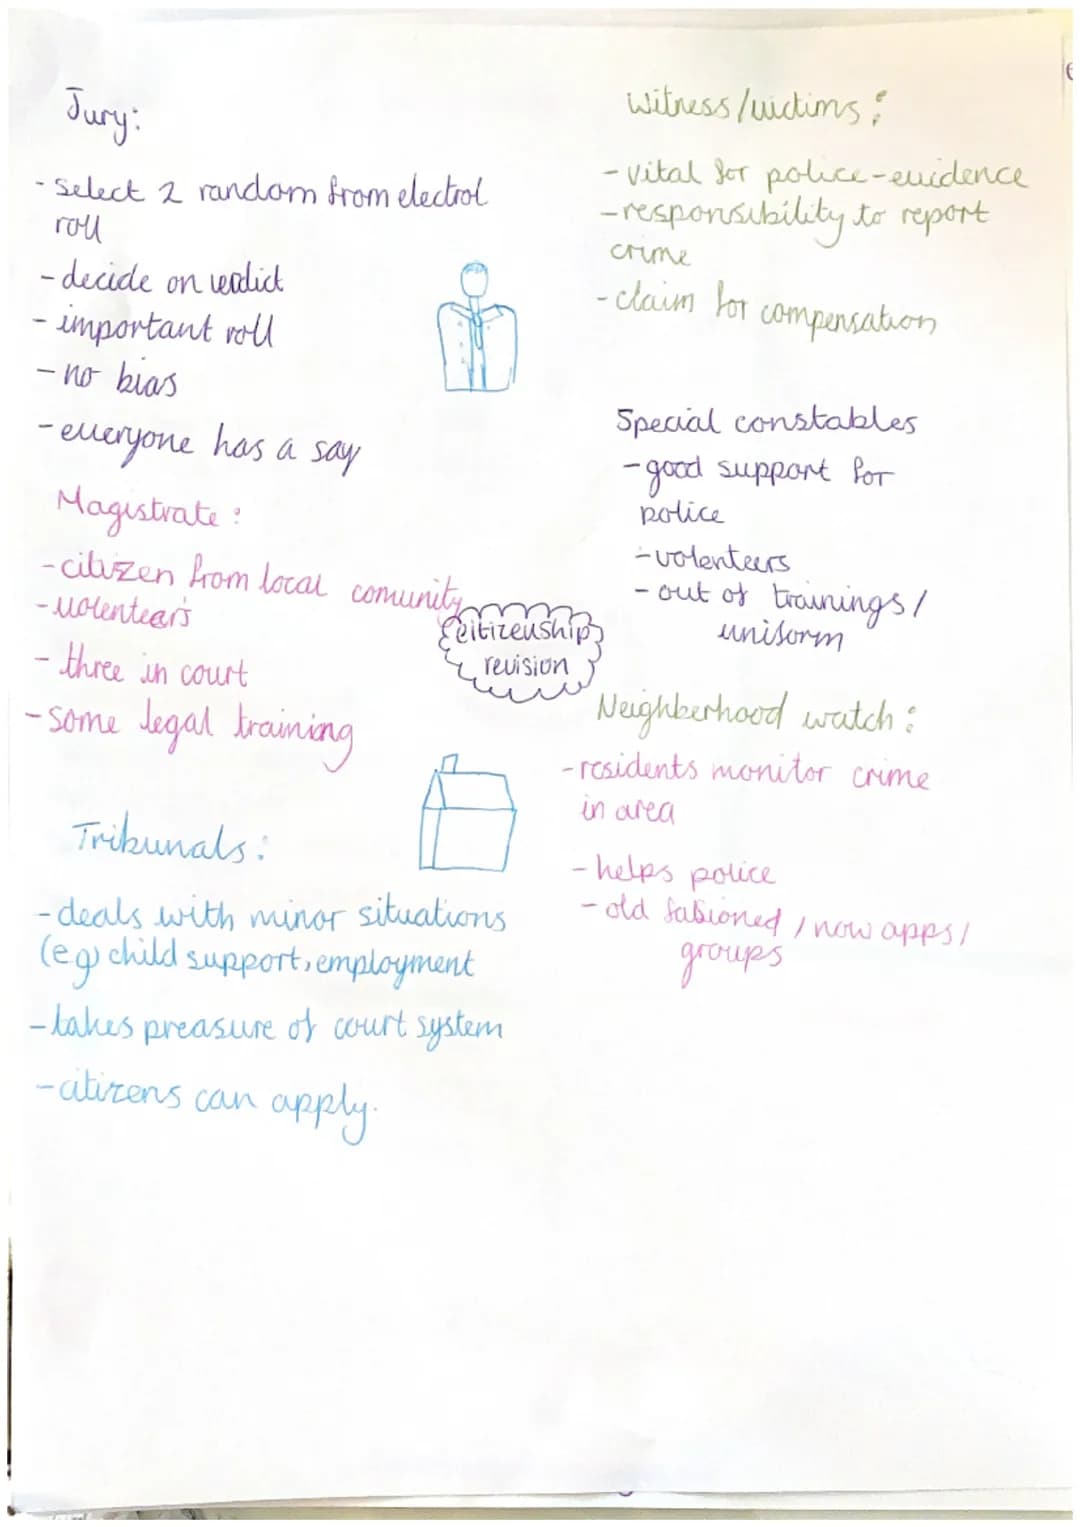 Jury:
- select 2 random from electrol
roll
- decide on verdict
- important roll
- no bias
- everyone has a say
Magistrate:
- citizen from local comunity
- volentears
- three in court
- some legal training
Tribunals:
- deals with minor situations
(eg) child support, employment
- takes preasure of court system
- citizens can apply.
citizenship
revision
witness/victims:
- vital for police-evidence
- responsibility to report
crime
- claim for compensation
Special constables
- good support for
police
- volenteers
- out of trainings/
uniform
Neighberhood watch:
- residents monitor crime
in area
- helps police
- old fasioned / now apps/
groups